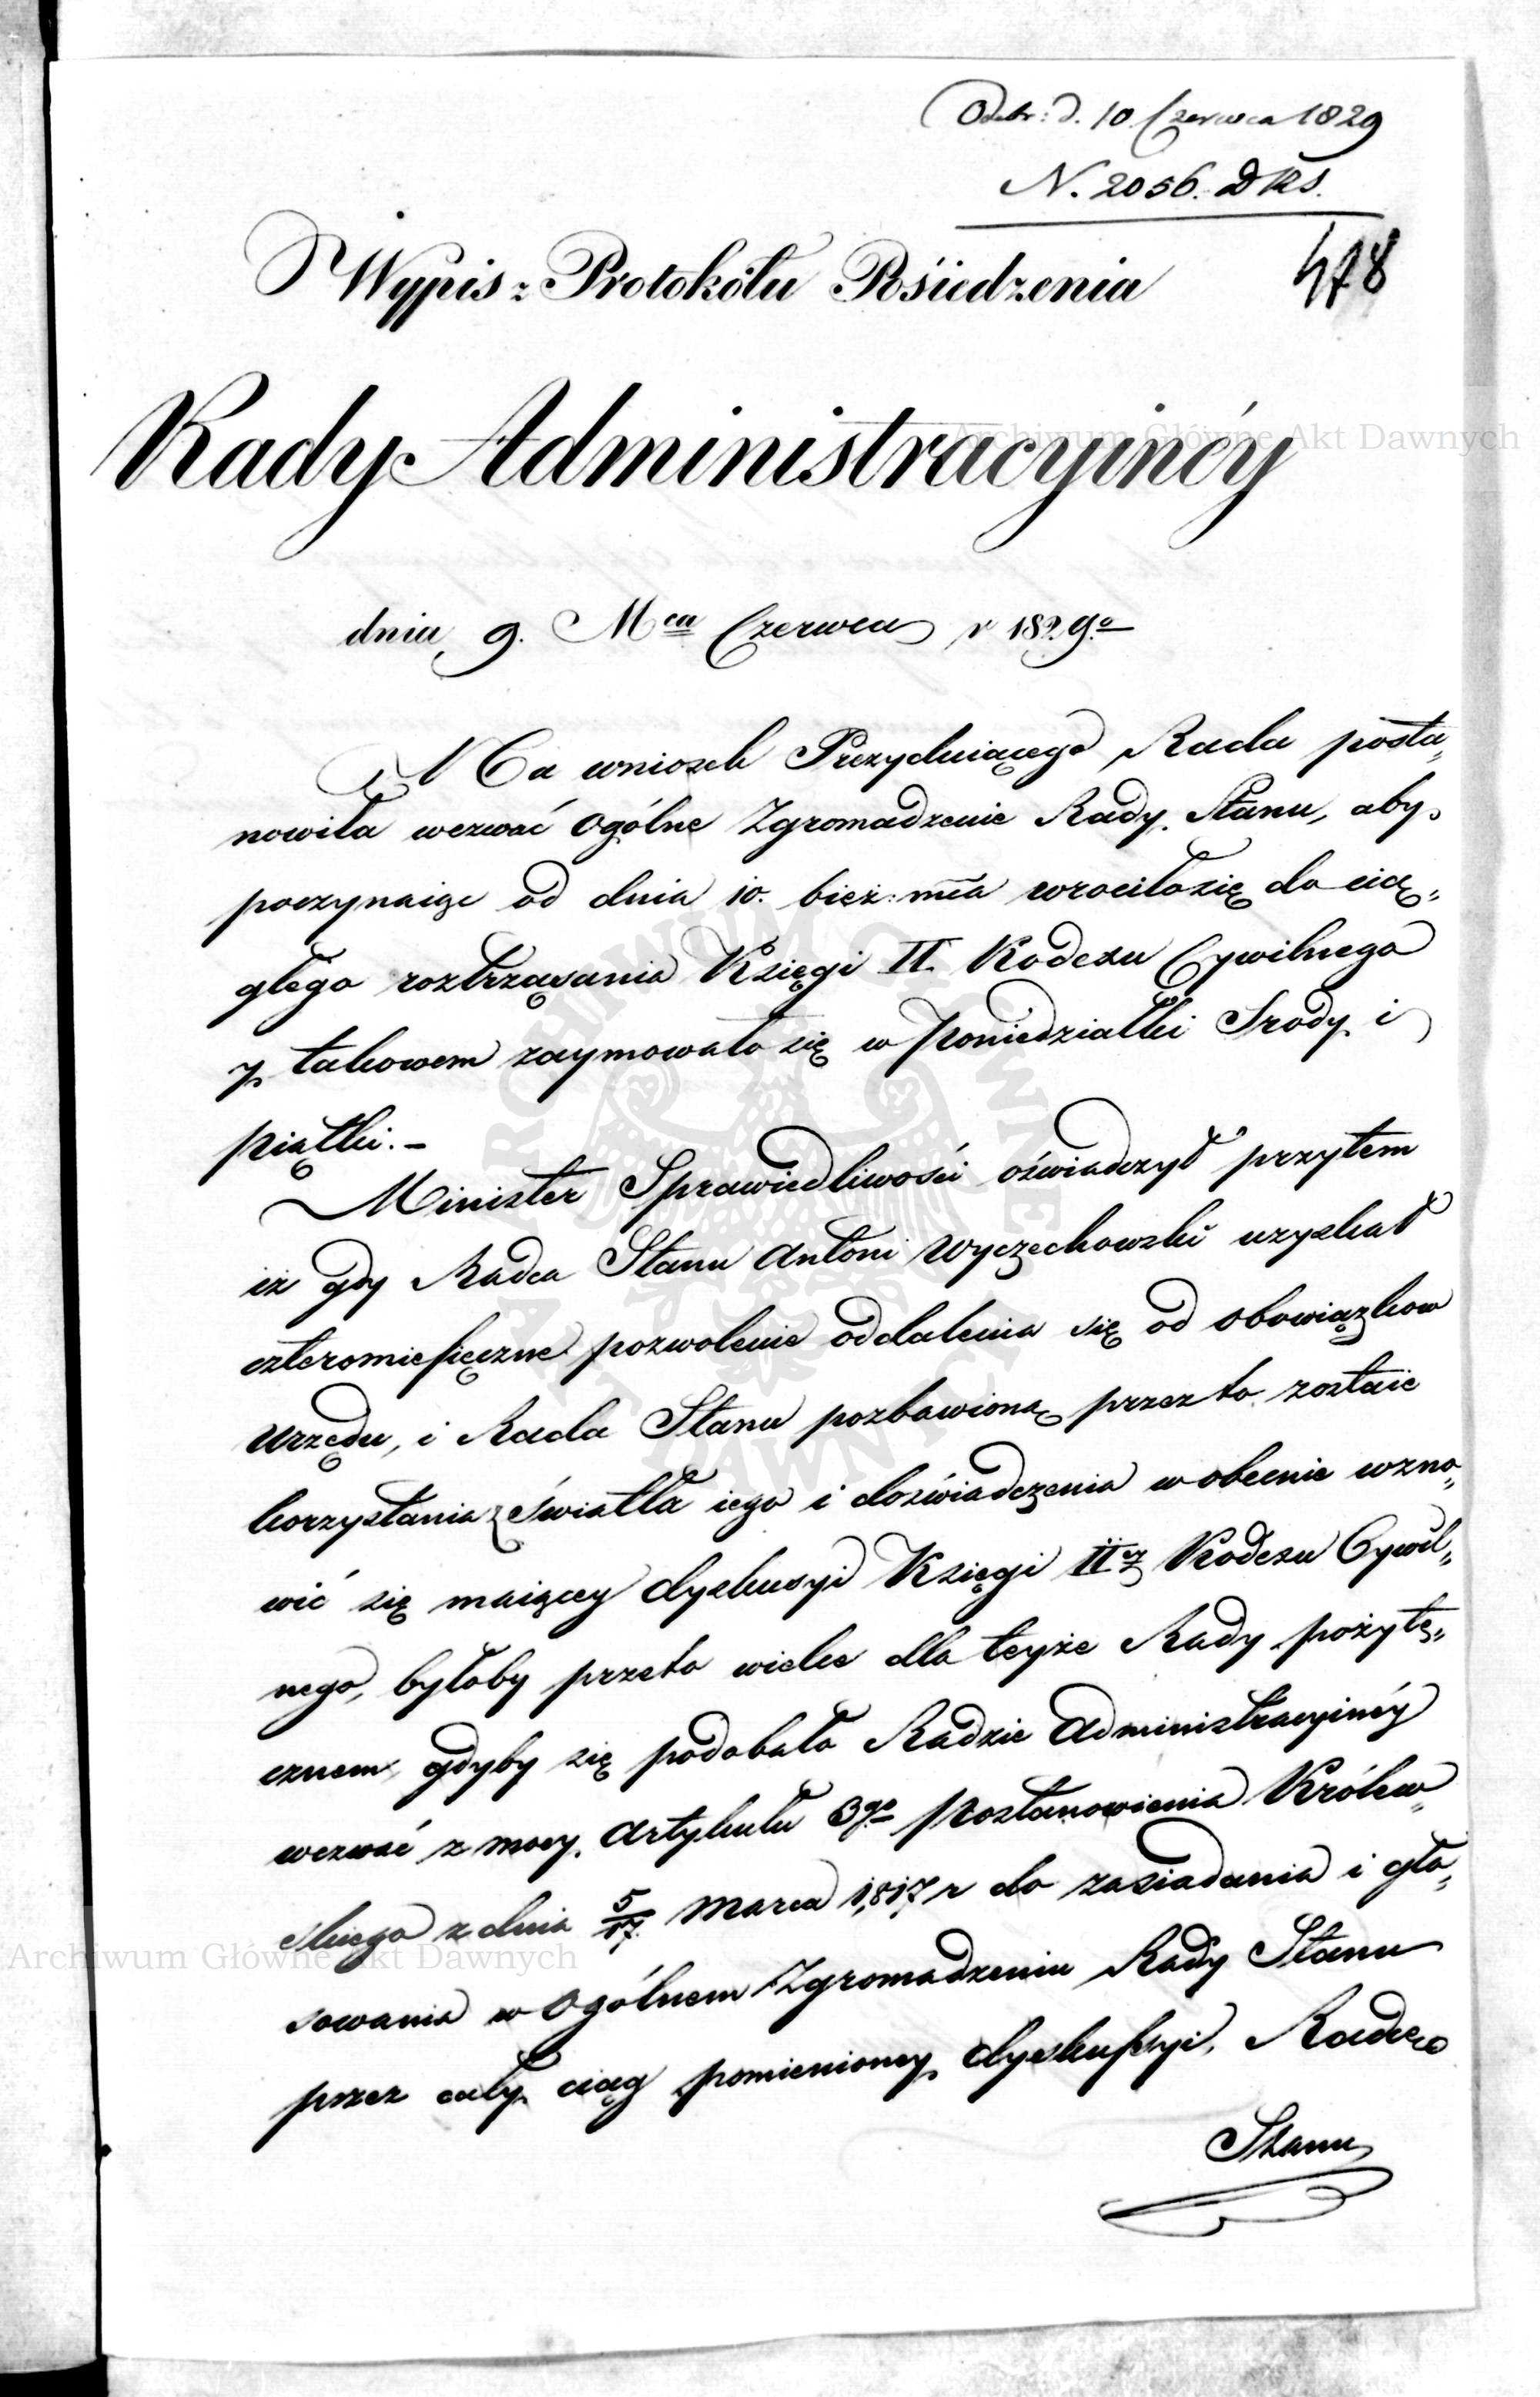 Odebr: d. 10 Czerwca 1829
N. 2056. DRS.
478
Wypis z Protokółu Pośiedzenia
Rady Administracyinéy
dnia 9. Mca Czerwca r 1829.o
Na wniosek Prezyduiącego Rada posta„
nowiła wezwać Ogólne Zgromadzenie Rady Stanu, aby
poczynaiąc od dnia 10. bież: mca wrociło się do cią„
głego roztrząsania Księgi II. Kodexu Cywilnego
y takowem zaymowało się w Poniedziałki Srody i
piątki. –
Minister Sprawiedliwości oświadczył przytem
iż gdy Radca Stanu Antoni Wyczechowski uzyskał
czteromiesięczne pozwolenie oddalenia się od obowiązkow
Urzędu, i Rada Stanu pozbawioną przez to zostaie
korzystania z światła iego i doświadczenia w obecnie wzno„
wić się maiącey dyskusyi Księgi IIey Kodexu Cywil„
nego, byłoby przeto wielce dla teyże Rady pożyte„
cznem, gdyby się podobało Radzie Administracyinéy
wezwać z mocy Artykułu 3go Postanowienia Królew„
skiego z dnia 5/17. Marca 1817 r do zasiadania i gło„
sowania w Ogólnem Zgromadzeniu Rady Stanu
przez cały ciąg pomienioney dyskussyi, Radcę
Stanu
Archiwum Główne Akt Dawnych
Archiwum Główne Akt Dawnych
ARCHIWUM GŁÓWNE AKT DAWNYCH